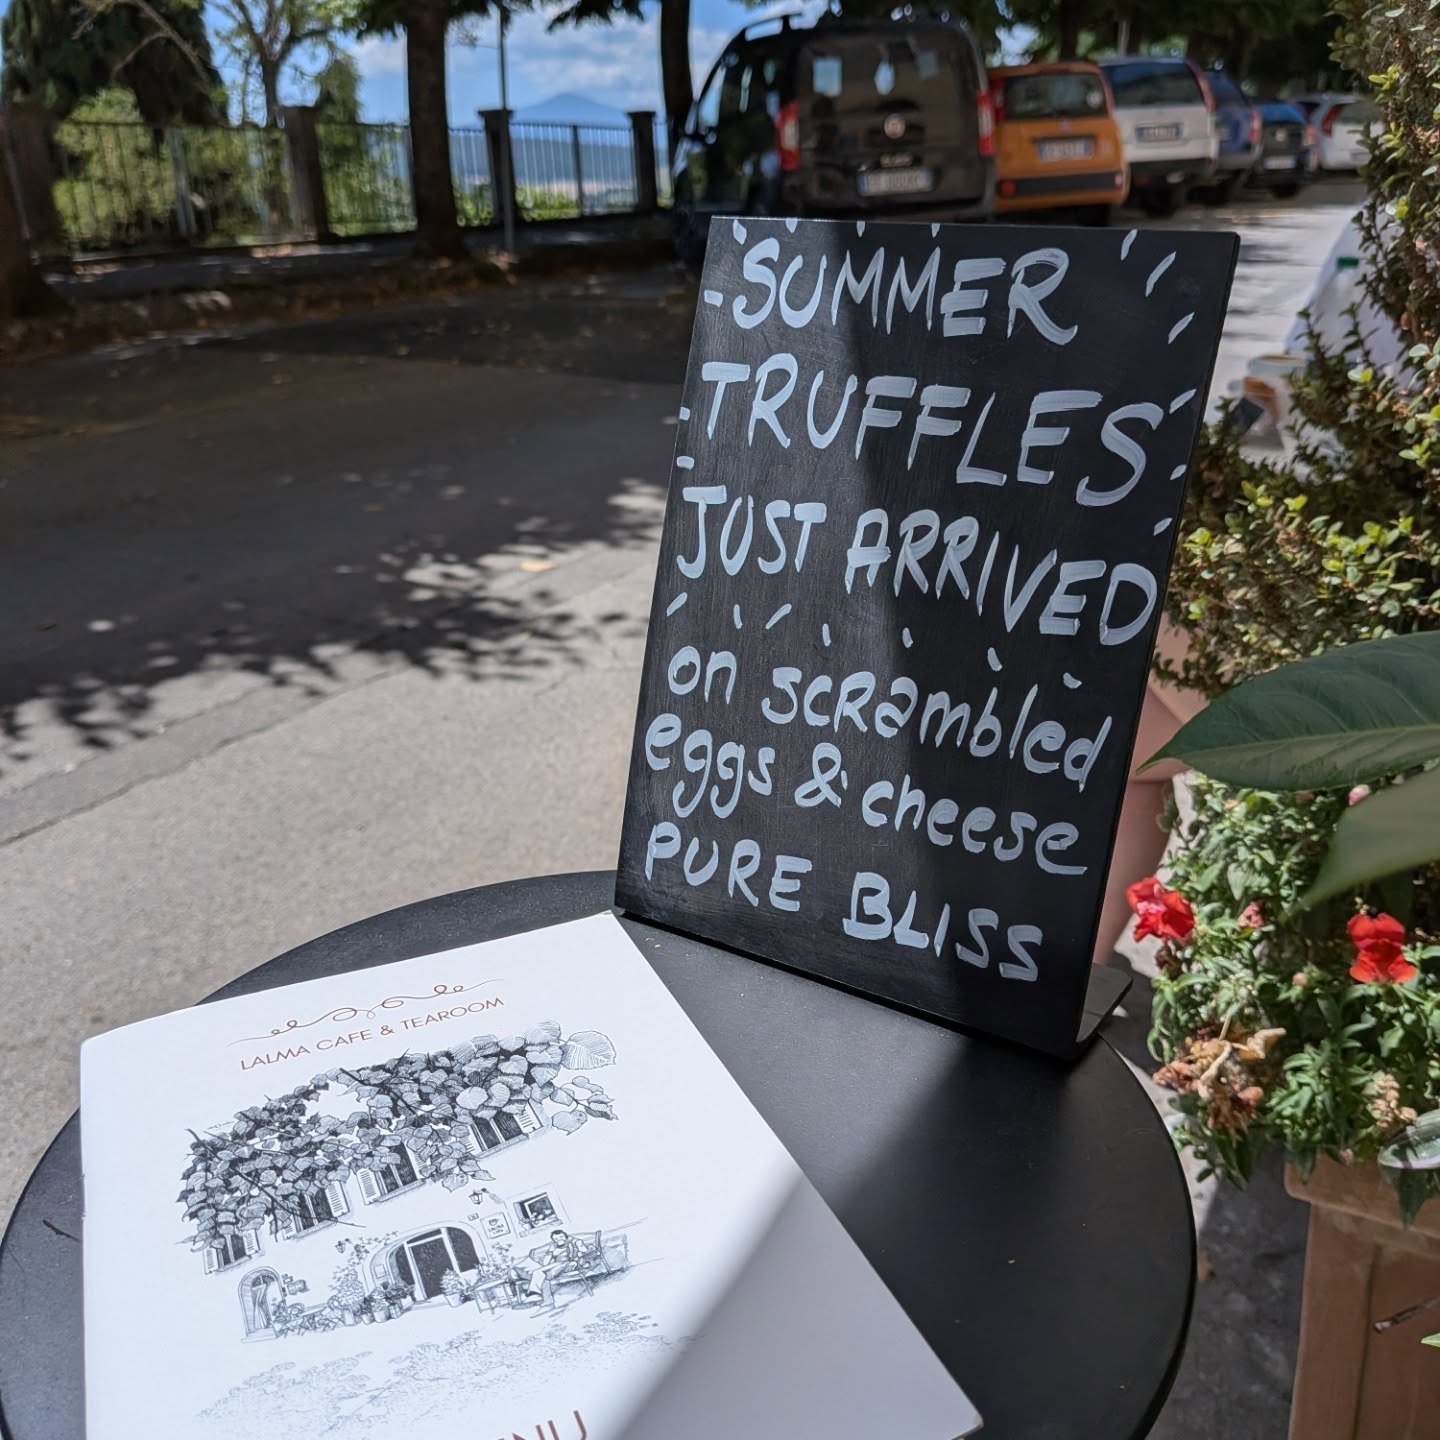 SUMMER
TRUFFLES
JUST ARRIVED
on scrambled
eggs & cheese
PURE BLISS
LALMA CAFE & TEAROOM